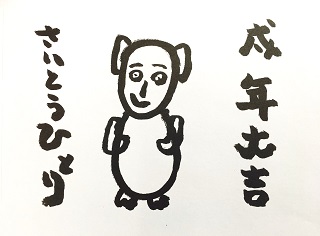 戌年大吉
さいとうひとり